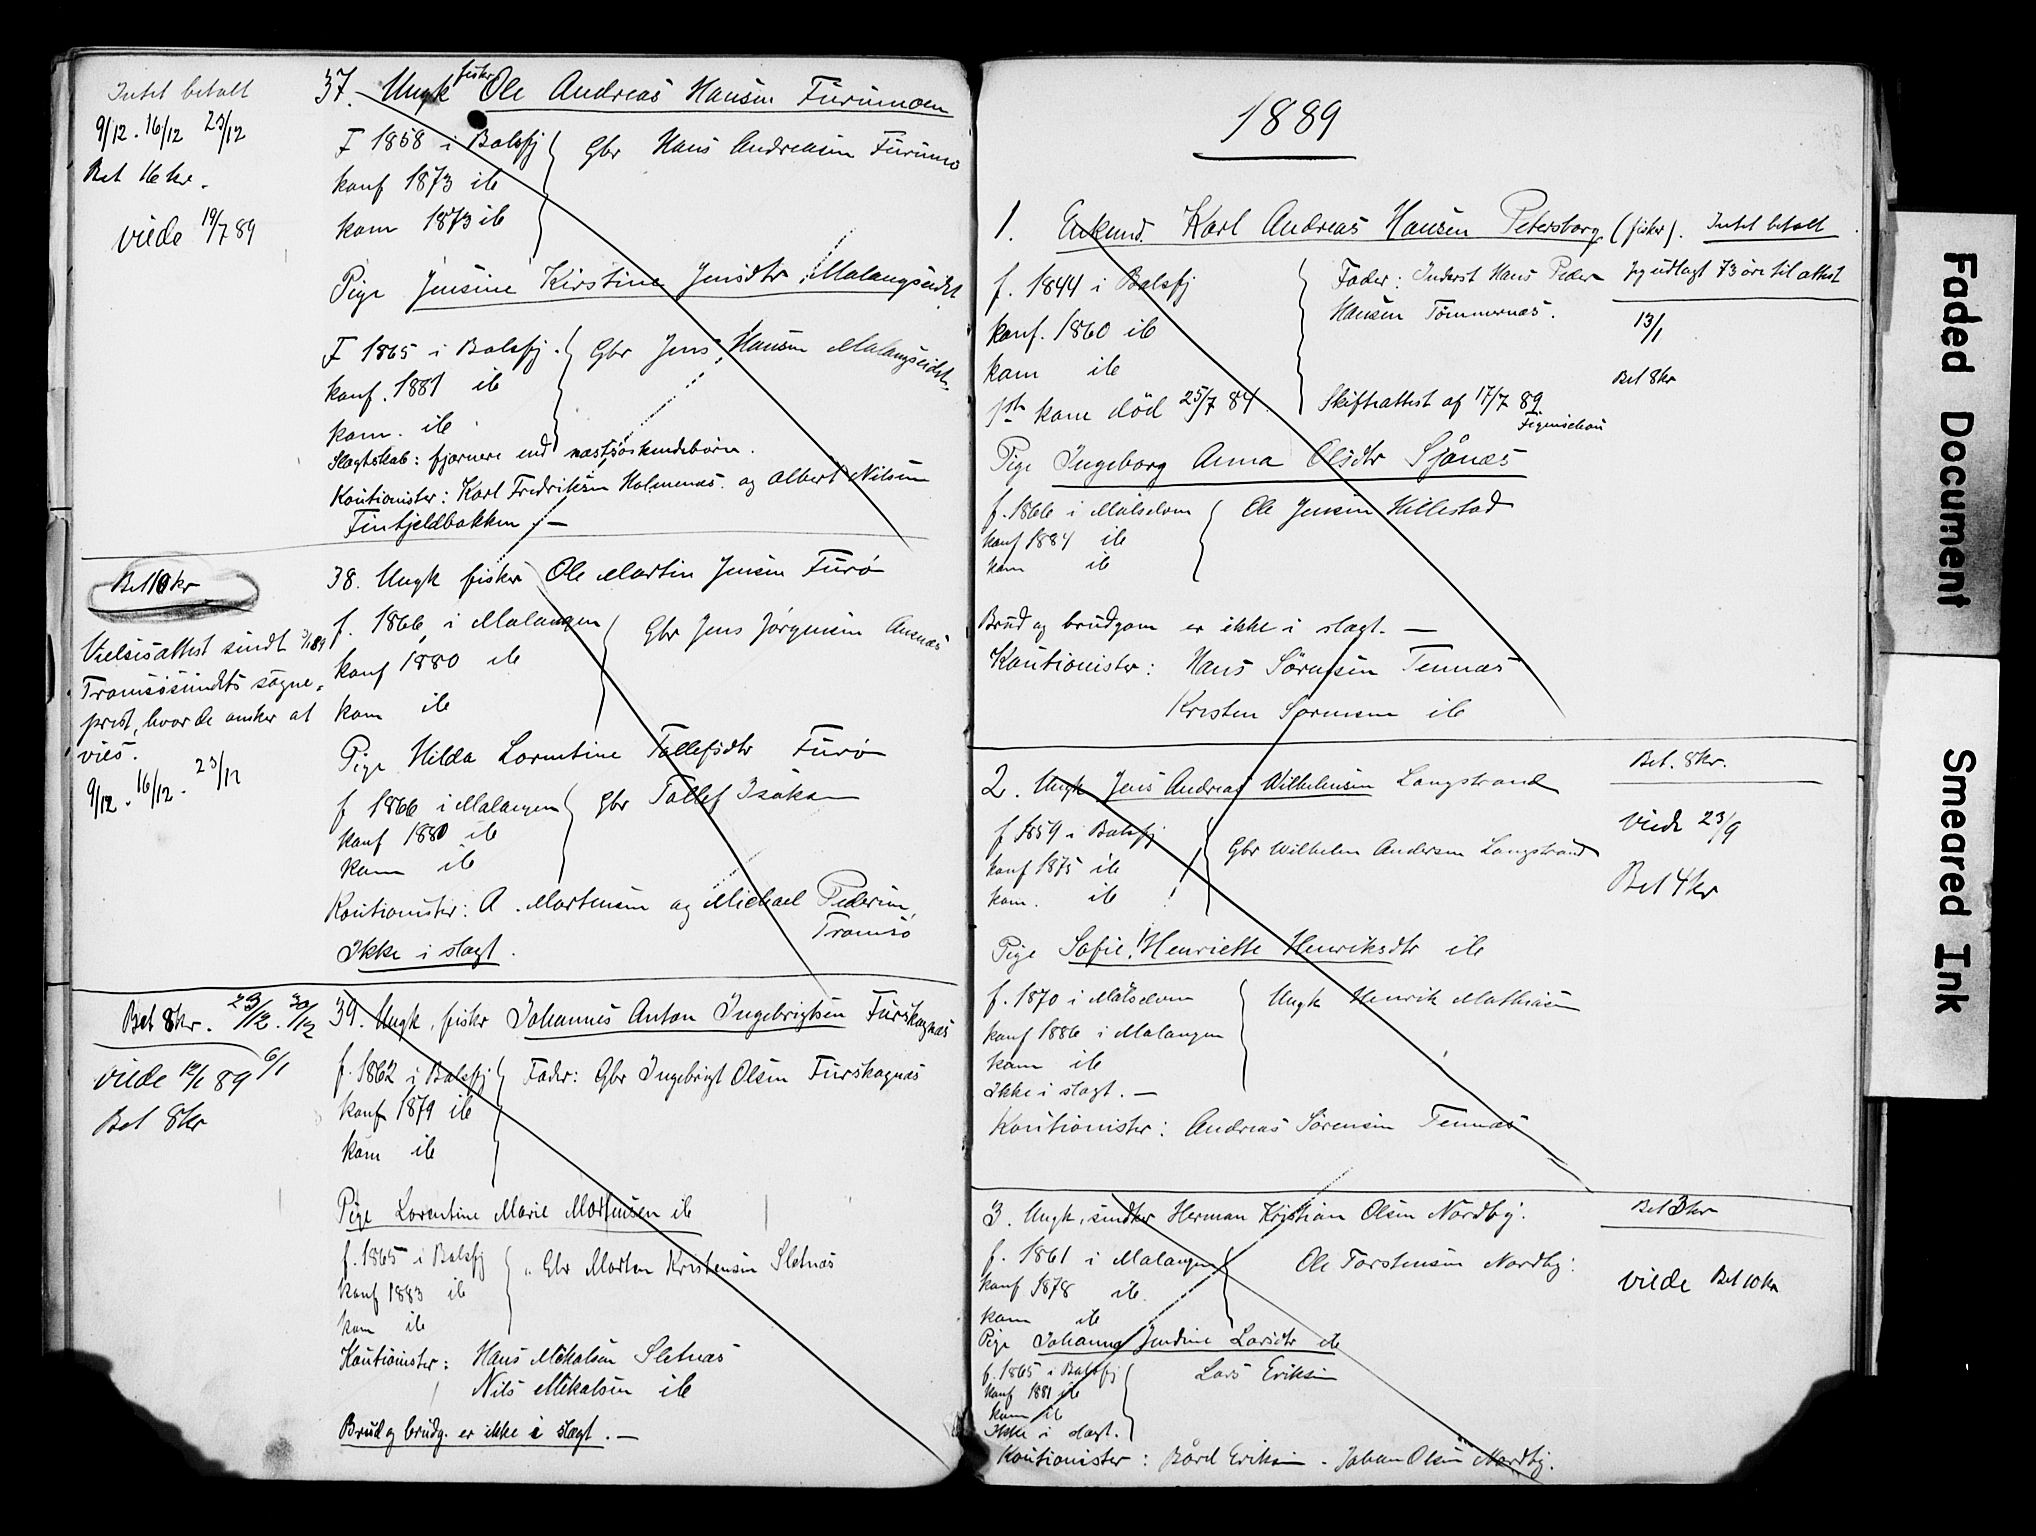 Intet betalt
9/12 . 16/12 23/12
Bet 16 kr.
viede 19/7 89
37. Ungk fisker Ole Andreas Hansen Furumoen
F 1858 i Balsfj
konf 1873 ib
kom 1873 ib
Gbr Hans Andreasen Furumo
Pige Jensine Kirstine Jensdtr Malangseidet
F 1865 i Balsfj.
konf. 1881 ib
kom. ib.
Gbr Jens Hansen Malangseidet
Slægtskab: fjærnere end næstsøskendebørn.
Koutionister: Karl Fredriksen Holmenæs. og Albert Nilsen
Finfjeldbakken. —
Bet 10 kr
Vielsesattest sendt 3/1 89
Tromsøsundets sogne-
prest, hvor de ønsker at
vies.
9/12 . 16/12 . 23/12
38. Ungk fisker Ole Martin Jensen Furø
f. 1866 i Malangen
konf 1880 ib
kom ib
Gbr Jens Jørgensen Ansnæs
Pige Hilda Lorentine Tollefsdtr Furø
f 1866 i Malangen
konf 1880 ib
kom ib
Gbr Tollef Isaksen
Koutionister: A. Mortensen og Michael Pedersen,
Tromsø
Ikke i slægt.
Bet 8 kr. 23/12 . 30/12
6/1
viede 12/1 89
Bet 8 kr
39. Ungk, fisker Johannes Anton Ingebrigtsen Furskognæs
f. 1862 i Balsfj
konf 1879 ib
kom ib
Fader: Gbr Ingebrigt Olsen Furskognæs
Pige Lorentine Marie Mortensen ib
f. 1865 i Balsfj
konf 1883 ib
kom ib
Gbr Morten Kristensen Sletnæs
Koutionister: Hans Mikalsen Sletnæs
Nils Mikalsen ib
Brud og brudg. er ikke i slægt. —
1889
1. Enkemd. Karl Andreas Hansen Petersborg (fisker). Intet betalt
f. 1844 i Balsfj
konf. 1860 ib
kom ib
1ste kone død 25/7 84.
Fader: Inderst Hans Peder
Hansen Tømmernæs.
Skifteattest af 17/7 89
Figenschou
Jeg udlagt 73 øre til attest
13/1
Bet 8 kr
Pige Ingeborg Anna Olsdtr Sjånæs
f. 1866 i Målselven
konf 1884 ib
kom ib
Ole Jensen Hillestad
Brud og brudgom er ikke i slægt. —
Koutionister: Hans Sørensen Tennæs
Kristen Sørensen ib
2. Ungk Jens Andreas Wilhelmsen Langstrand
f 1859 i Balsfj
konf 1875 ib
kom. ib
Gbr Wilhelm Andersen Langstrand
Bet. 8 kr.
viede 23/9
Bet 4 kr
Pige Sofie Henriette Henriksdtr ib
f. 1870 i Målselven
konf 1886 i Malangen
kom ib
Ungk Henrik Mathisen
Ikke i slægt. —
Koutionister: Andreas Sørensen Tennæs
3. Ungk, Herman Kristian Olsen Nordby.
f. 1861 i Malangen
konf 1878 ib.
kom ib
Ole Torstensen Nordby.
Bet 3 kr
viede Bet 10 kr
Pige Johanna Jendine Larsdtr ib
f. 1865 i Balsfj
konf 1881 ib
kom ib
Lars Eriksen
Ikke i slægt.
Koutionister: Bård Eriksen - Johan Olsen Nordby.
Faded Document
Smeared Ink